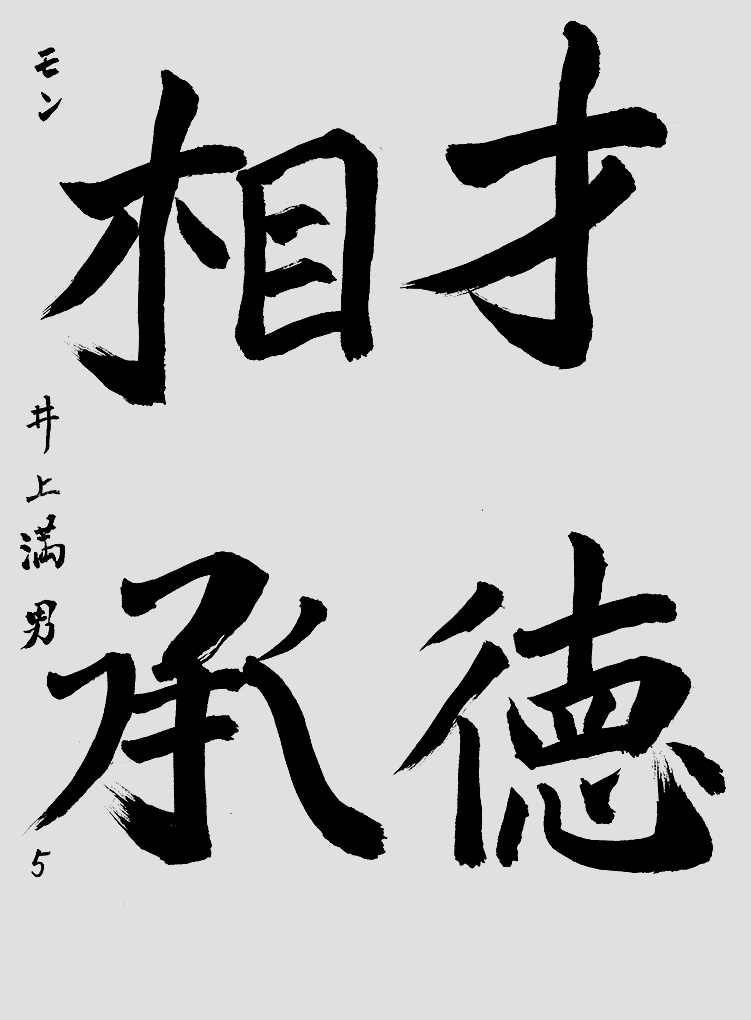 才徳
相承
モン 井上満男 5